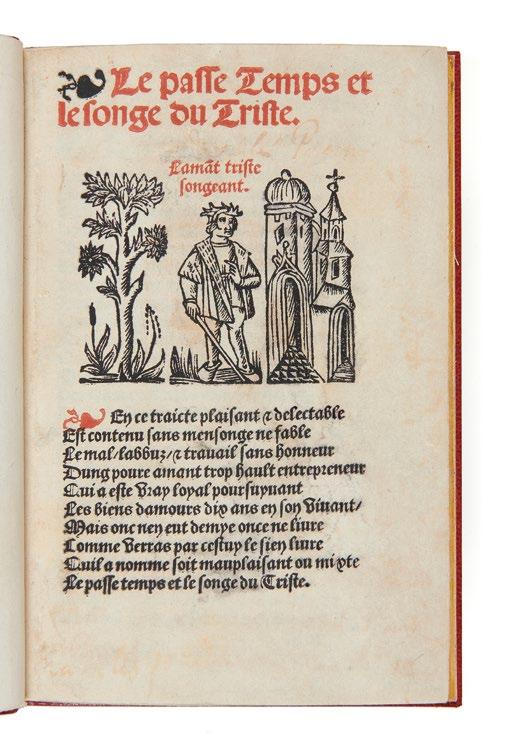 Le passe Temps et
le songe du Triste.
Lamāt triste
songeant.
En ce traicte plaisant ⁊ delectable
Est contenu sans mensonge ne fable
Le mal / labbuz / ⁊ trauail sans honneur
Dung poure amant trop hault entrepreneur
Qui a este vray loyal poursuyuant
Les biens damours dix ans en son viuant /
Mais onc nen eut demye once ne liure
Comme verras par cestuy le sien liure
Quil a nomme soit mauplaisant ou mixte
Le passe temps et le songe du Triste.